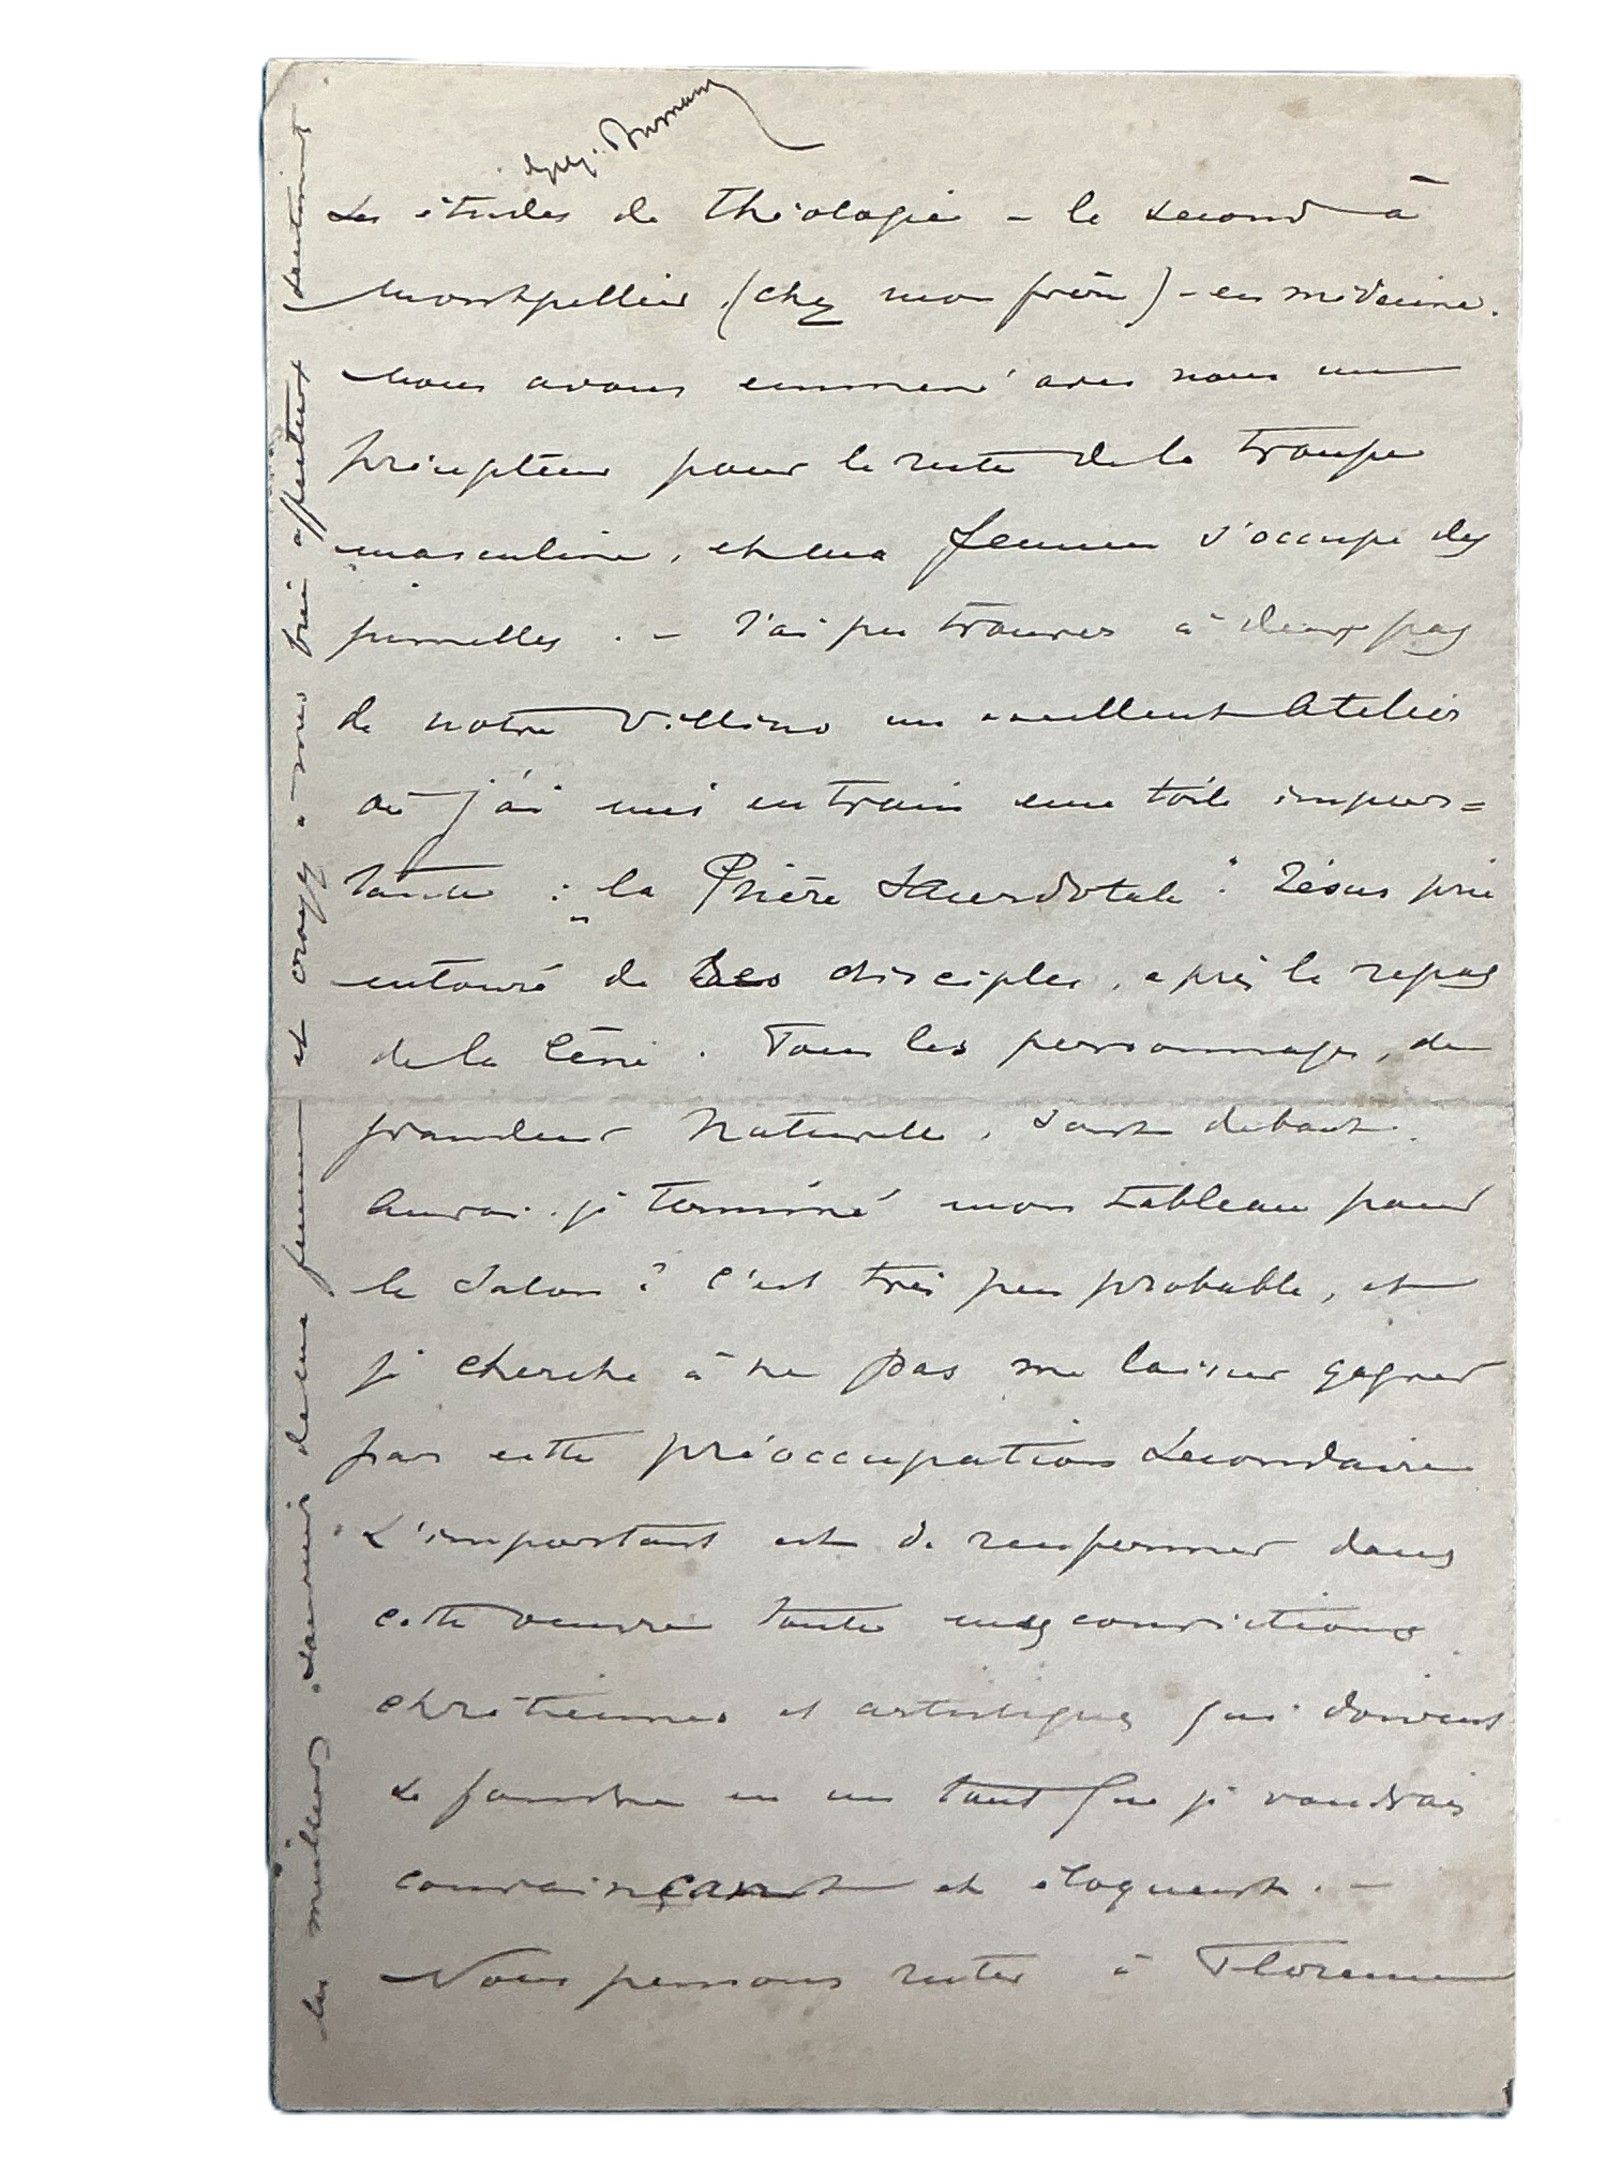 ses études de théologie - le second à
Montpellier, (chez mon frère) - en médecine.
Nous avons emmené avec nous un
précepteur pour le reste de la troupe
masculine, et ma femme s'occupe des
jumelles. - J'ai pu trouver à deux pas
de notre villino un excellent atelier
où j'ai mis en train une toile impor=
tante : "la Prière Sacerdotale". Jésus prie
entouré de ses disciples, après le repas
de la Cène. Tous les personnages, de
grandeur naturelle, sont debout.
Aurai-je terminé mon tableau pour
le Salon ? C'est très peu probable, et
je cherche à ne pas me laisser gagner
par cette préoccupation secondaire
L'important est de renfermer dans
cette oeuvre toutes mes convictions
chrétiennes et artistiques qui doivent
se fondre en un tout que je voudrais
convaincant et éloquent. -
Nous pensons rester à Florence
les meilleurs souvenirs de ma femme et croyez à mes bien affectueux sentiments
Eug. Burnand